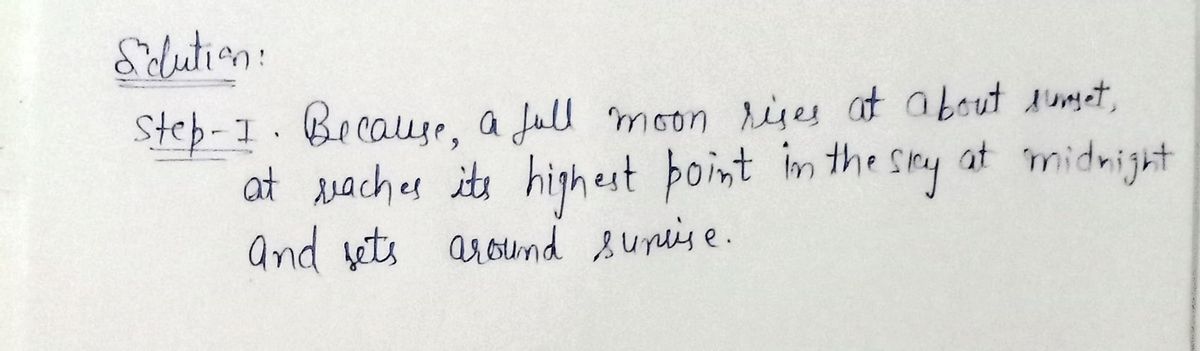 Solution:
Step-I. Because, a full moon rises at about sunset,
at reaches its highest point in the sky at midnight
and sets around sunrise.